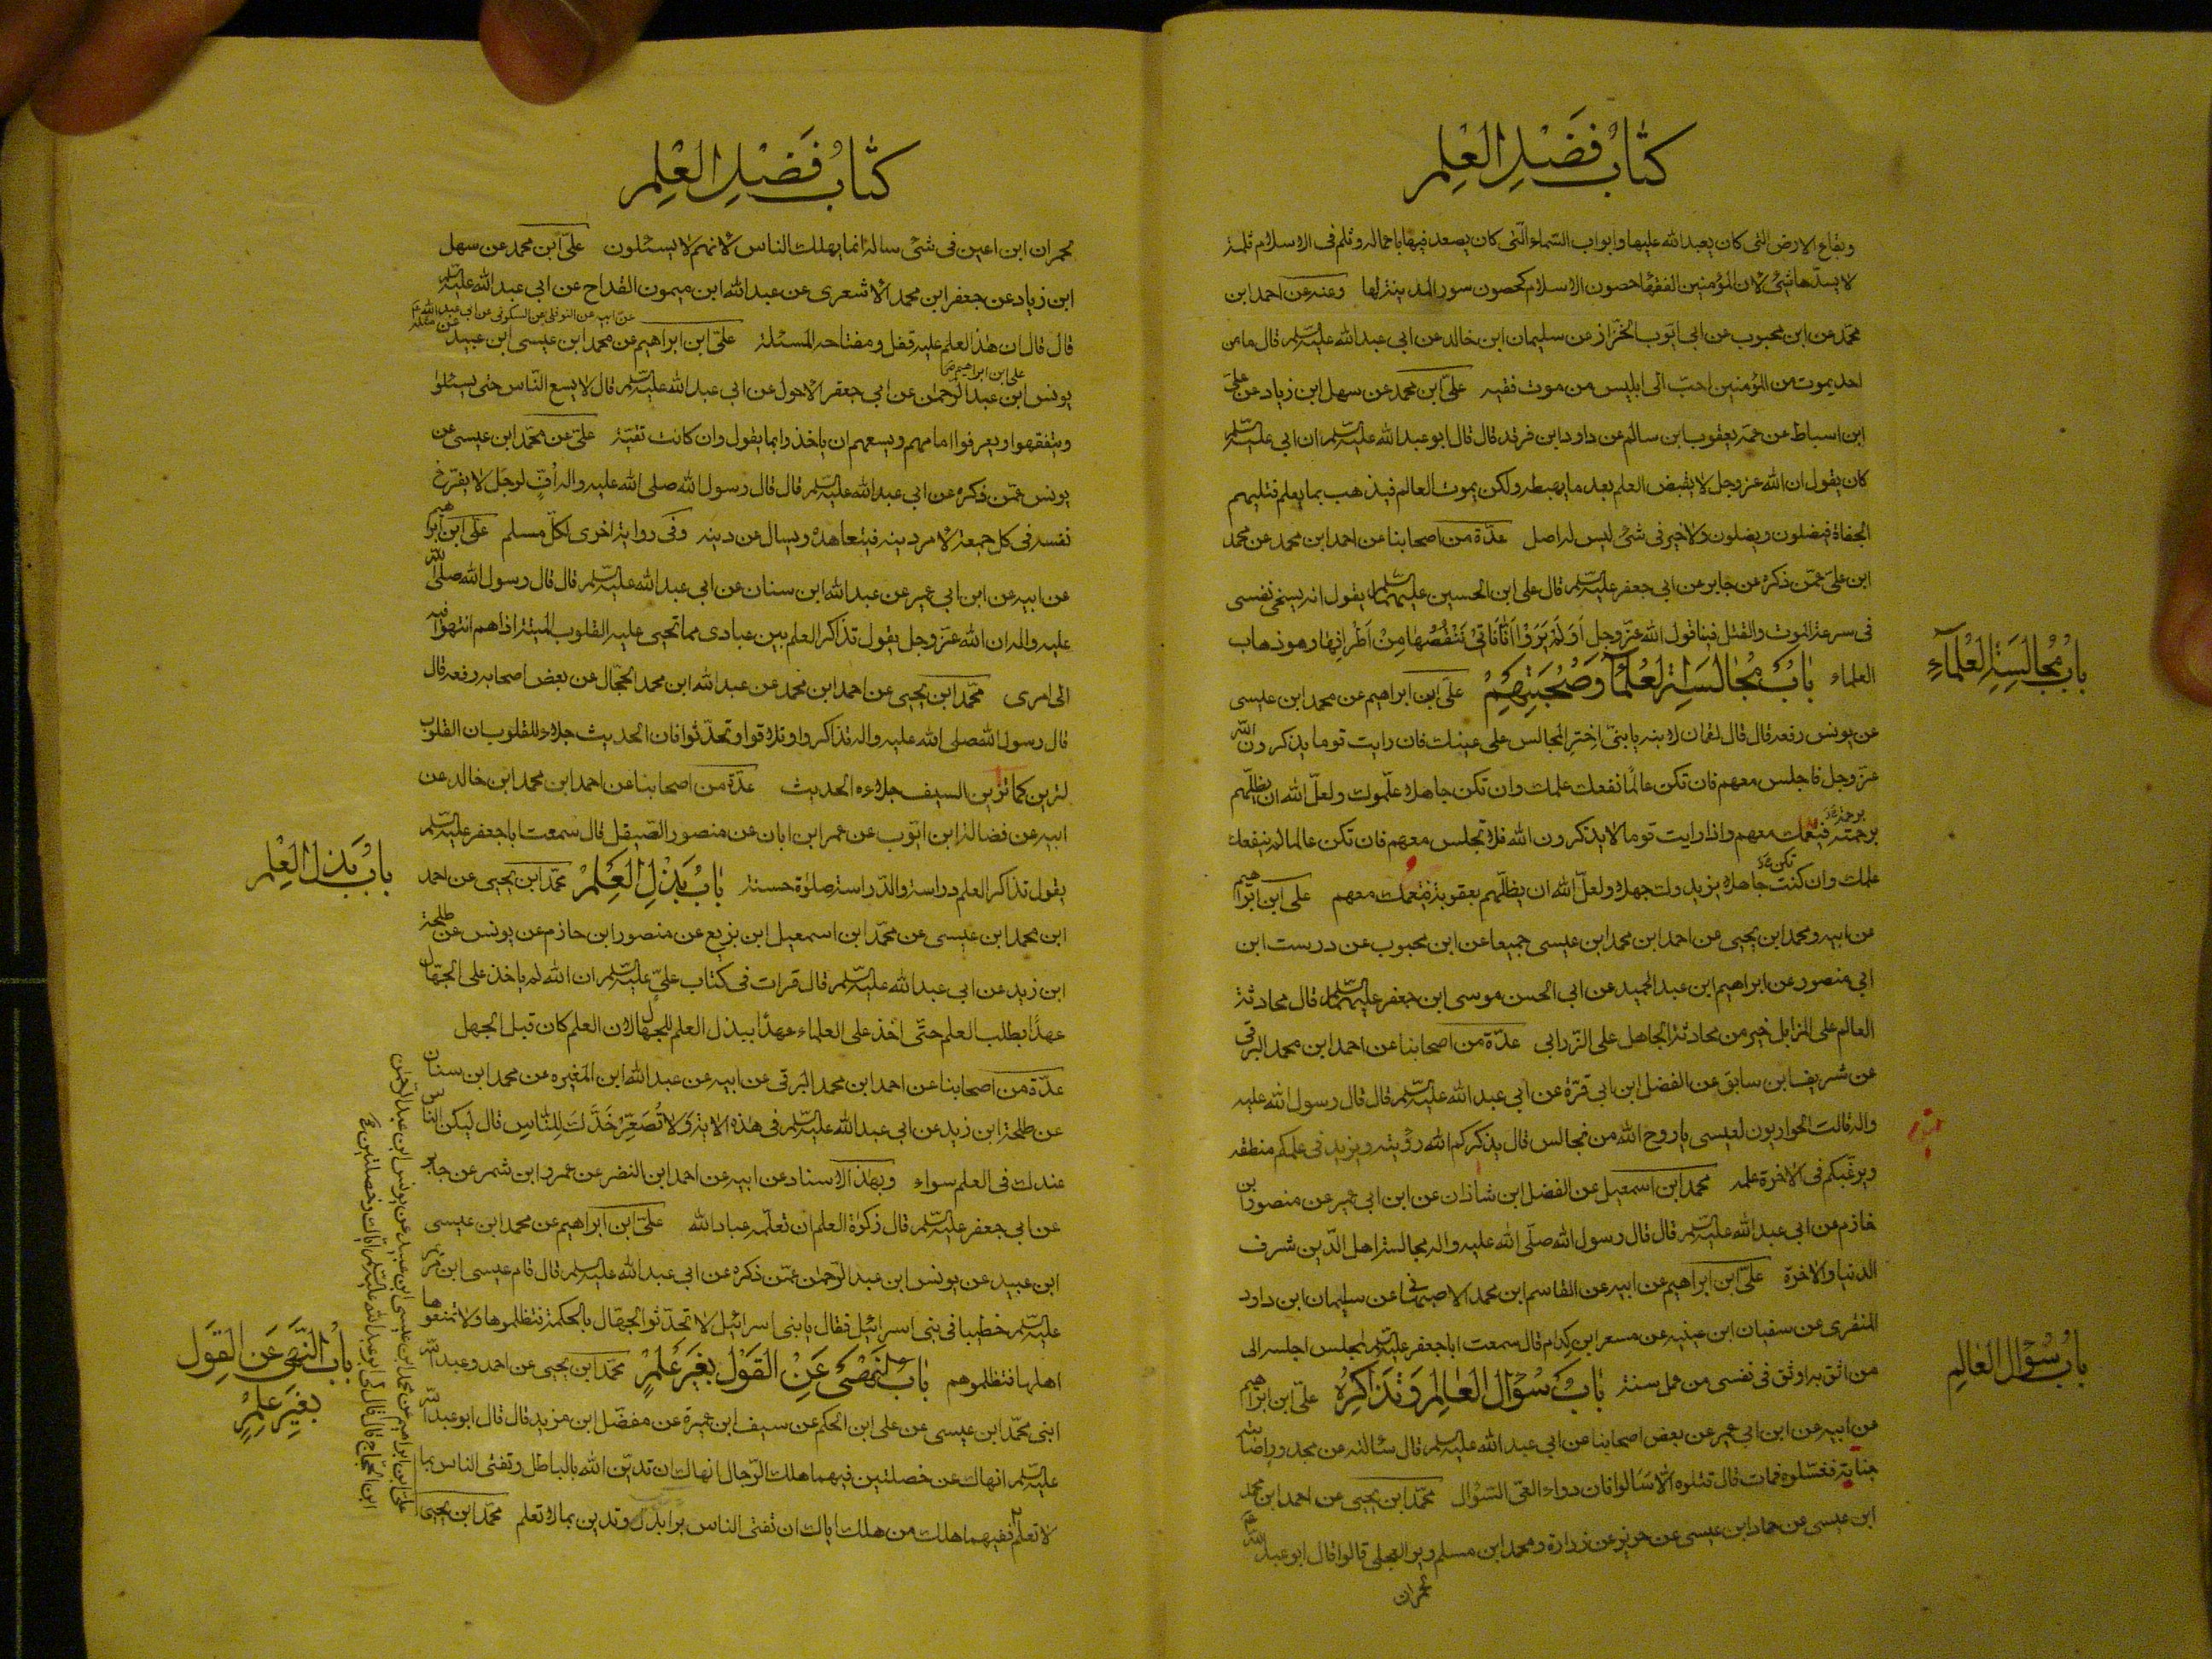 كتاب فضل العلم
وبقاع الارض التى كان يعبد الله عليها وابواب السماء الّتى كان يصعد فيها باعماله وثلم فى الاسلام ثلمة
لا يسدّها شئ لان المؤمنين الفقهاء حصون الاسلام كحصون سور المدينة لها وعنه عن احمد ابن
محمّد عن ابن محبوب عن ابى ايّوب الخزّاز عن سليمان ابن خالد عن ابى عبد الله عليه السّلم قال ما من
احد يموت من المؤمنين احبّ الى ابليس من موت فقيه علىّ ابن محمد عن سهل ابن زياد عن علىّ
ابن اسباط عن عمّه يعقوب ابن سالم عن داود ابن فرقد قال قال ابو عبد الله عليه السّلم ان ابى عليه السّلم
كان يقول ان الله عز وجل لا يقبض العلم بعد ما يهبطه ولكن يموت العالم فيذهب بما يعلم فتليهم
الجفاة فيضلون ويضلون ولا خير فى شئ ليس له اصل عدّة من اصحابنا عن احمد ابن محمد عن محمد
ابن علىّ عمّن ذكره عن جابر عن ابى جعفر عليه السّلم قال كان على ابن الحسين عليهما السّلم يقول انه يسخى نفسى
فى سرعة الموت والقتل فينا قول الله عزّ وجل اَوَ لَمْ يَرَوْا اَنّا نَاْتِى الْاَرْضَ نَنْقُصُهَا مِنْ اَطْرَافِهَا وهو ذهاب
العلماء بَابُ مُجَالَسَةِ الْعُلَمَآءِ وَصُحْبَتِهِمْ علىّ ابن ابراهيم عن محمد ابن عيسى
عن يونس رفعه قال قال لقمان لابنه يا بنىّ اختر المجالس على عينك فان رايت قوما يذكرون الله
عزّ وجل فاجلس معهم فان تكن عالمًا نفعك علمك وان تكن جاهلا علّموك ولعلّ الله ان يظلّهم
برحمته فيعمّك معهم واذا رايت قوما لا يذكرون الله فلا تجلس معهم فان تكن عالما لم ينفعك
علمك وان كنت جاهلا يزيدوك جهلا ولعلّ الله ان يظلّهم بعقوبة فيعمّك معهم على ابن ابراهيم
عن ابيه ومحمد ابن يحيى عن احمد ابن محمد ابن عيسى جميعا عن ابن محبوب عن درست ابن
ابى منصور عن ابراهيم ابن عبد الحميد عن ابى الحسن موسى ابن جعفر عليهما السّلم قال محادثة
العالم على المزابل خير من محادثة الجاهل على الزّرابى عدّة من اصحابنا عن احمد ابن محمد البرقى
عن شريف ابن سابق عن الفضل ابن ابى قرّة عن ابى عبد الله عليه السّلم قال قال رسول الله عليه
واله قالت الحواريون لعيسى يا روح الله من نجالس قال يذكركم الله رؤيته ويزيد فى علمكم منطقه
ويرغّبكم فى الاخرة علمه محمد ابن اسمعيل عن الفضل ابن شاذان عن ابن ابى عمير عن منصور ابن
حازم عن ابى عبد الله عليه السّلم قال قال رسول الله صلّى الله عليه واله مجالسة اهل الدّين شرف
الدنيا والاخرة علىّ ابن ابراهيم عن ابيه عن القاسم ابن محمد الاصبهانى عن سليمان ابن داود
المنقرى عن سفيان ابن عيينه عن مسعر ابن كدام قال سمعت ابا جعفر عليه السّلم لمجلس اجلسه الى
من اثق به اوثق فى نفسى من عمل سنة بَابُ سُؤَالِ الْعَالِمِ وَتَذَاكُرِهِ علىّ ابن ابراهيم
عن ابيه عن ابن ابى عمير عن بعض اصحابنا عن ابى عبد الله عليه السّلم قال سألته عن مجدور اصابته
جنابة فغسّلوه فمات قال قتلوه الّا سَألوا فان دواء العىّ السّؤال محمّد ابن يحيى عن احمد ابن محمد
ابن عيسى عن حماد ابن عيسى عن حريز عن زرارة ومحمد ابن مسلم وبريد العجلى قالوا قال ابو عبد الله ع
لحمران
باب مجالسة العلماء
باب سؤال العالم
كتاب فضل العلم
لحمران ابن اعين فى شئ ساله انما يهلك الناس لانهم لا يسئلون علىّ ابن محمد عن سهل
ابن زياد عن جعفر ابن محمد الاشعرى عن عبد الله ابن ميمون القداح عن ابى عبد الله عليه السّلم
قال قال ان هذا العلم عليه قفل ومفتاحه المسئلة علىّ ابن ابراهيم عن محمد ابن عيسى ابن عبيد عن
عن ابيه عن النوفلى عن السكونى عن ابى عبد الله ع مثله
على ابن ابراهيم
يونس ابن عبد الرّحمن عن ابى جعفر الاحول عن ابى عبد الله عليه السّلم قال لا يسع النّاس حتى يسئلوا
ويتفقهوا ويعرفوا امامهم ويسعهم ان ياخذوا بما يقول وان كانت تقيّة علىّ عن محمّد ابن عيسى عن
يونس عمّن ذكره عن ابى عبد الله عليه السّلم قال قال رسول الله صلى الله عليه واله اُفٍّ لرجل لا يفرّغ
نفسه فى كل جمعة لامر دينه فيتعاهده ويسال عن دينه وفى رواية اخرى لكلّ مسلم علىّ ابن ابراهيم
عن ابيه عن ابن ابى عمير عن عبد الله ابن سنان عن ابى عبد الله عليه السّلم قال قال رسول الله صلى الله
عليه واله ان الله عزّ وجل يقول تذاكر العلم بين عبادى مما تحيى عليه القلوب الميتة اذا هم انتهوا فيه
الى امرى محمّد ابن يحيى عن احمد ابن محمد عن عبد الله ابن محمد الحجّال عن بعض اصحابه رفعه قال
قال رسول الله صلى الله عليه واله تذاكروا وتلاقوا وتحدّثوا فان الحديث جلاء للقلوب ان القلوب
لترين كما ترين السيف جلاءه الحديث عدّة من اصحابنا عن احمد ابن محمد ابن خالد عن
ابيه عن فضالة ابن ايّوب عن عمر ابن ابان عن منصور الصّيقل قال سمعت ابا جعفر عليه السّلم
يقول تذاكر العلم دراسة والدّراسة صلوة حسنة بَابُ بَذْلِ الْعِلْمِ محمّد ابن يحيى عن احمد
ابن محمد ابن عيسى عن محمّد ابن اسمعيل ابن بزيع عن منصور ابن حازم عن يونس عن طلحة
ابن زيد عن ابى عبد الله عليه السّلم قال قرات فى كتاب علىّ عليه السّلم ان الله لم ياخذ على الجهّال
عهدًا بطلب العلم حتّى اخذ على العلماء عهدًا ببذل العلم للجهال لان العلم كان قبل الجهل
عدّة من اصحابنا عن احمد ابن محمد البرقى عن ابيه عن عبد الله ابن المغيره عن محمد ابن سنان
عن طلحة ابن زيد عن ابى عبد الله عليه السّلم فى هذه الاية وَلا تُصَعِّرْ خَدَّكَ لِلنّاسِ قال ليكن الناس
عندك فى العلم سواء وبهذا الاسناد عن ابيه عن احمد ابن النضر عن عمرو ابن شمر عن جابر
عن ابى جعفر عليه السّلم قال زكوة العلم ان تعلّمه عباد الله علىّ ابن ابراهيم عن محمد ابن عيسى
ابن عبيد عن يونس ابن عبد الرّحمن عمّن ذكره عن ابى عبد الله عليه السّلم قال قام عيسى ابن مريم
عليه السّلم خطيبا فى بنى اسرائيل فقال يا بنى اسرائيل لا تحدّثوا الجهّال بالحكمة فتظلموها ولا تمنعوها
اهلها فتظلموهم بَابُ النَّهْىِ عَنِ الْقَوْلِ بِغَيْرِ عِلْمٍ محمّد ابن يحيى عن احمد وعبد الله
ابنى محمّد ابن عيسى عن على ابن الحكم عن سيف ابن عميرة عن مفضّل ابن مزيد قال قال ابو عبد الله
عليه السّلم انهاك عن خصلتين فيهما هلك الرّجال انهاك ان تديّن الله بالباطل وتفتى الناس بما
لا تعلم ففيهما هلك من هلك اياك ان تفتى الناس برايك وتدين بما لا تعلم محمّد ابن يحيى
باب بذل العلم
باب النّهى عن القول
بغير علمٍ
علىّ ابن ابراهيم عن محمد ابن عيسى ابن عبيد عن يونس ابن عبد الرحمن
ابن الحجاج قال قال لى ابو عبد الله عليه السّلم اياك وخصلتين